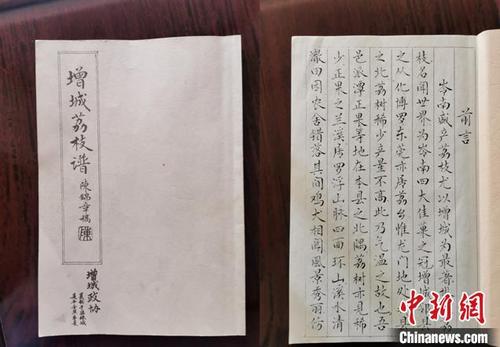 增城荔枝谱
陳錦章稿
陳
增城政协
前言
岺南盛产荔枝尤以增城为最著
枝名闻世界为岺南四大佳菓之冠增城
之从化博罗东莞亦属荔台惟龙门地处
之北荔树稀少产量不高此乃气温之故也吾
邑派潭正果等地在本县之北隅荔树亦見稀
少正果之兰溪居罗浮山脉四面环山溪水清
澈田园农舍错落其间鸡犬相闻風景秀丽彷
中新网
Chinanews.com